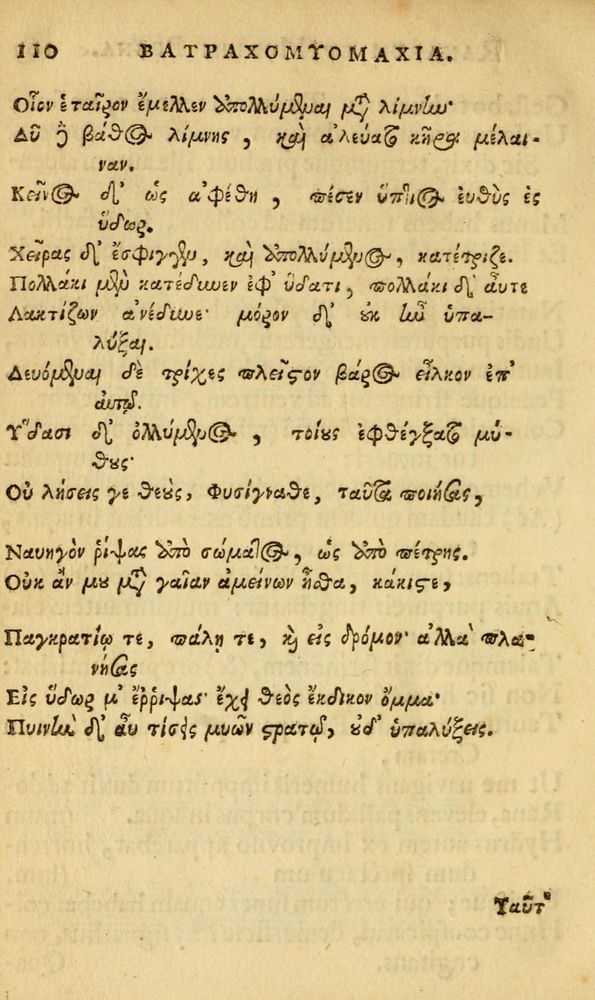 110 ΒΑΤΡΑΧΟΜΥΟΜΑΧΙΑ.
Οἷον ἑταῖρον ἔμελλεν ἀπολλύμεναι μετὰ λίμνην·
Δῦ δὲ βάθος λίμνης, καὶ ἀλεύατο κῆρα μέλαι-
ναν.
Κεῖνος δ' ὡς ἀφέθη, πέσεν ὕπτιος εὐθὺς ἐς
ὕδωρ.
Χεῖρας δ' ἔσφιγγεν, καὶ ἀπολλύμενος, κατέτριζε.
Πολλάκι μὲν κατέδυνεν ἐφ' ὕδατι, πολλάκι δ' αὖτε
Λακτίζων ἀνέδυνε· μόρον δ' οὐκ ἦν ὑπα-
λύξαι.
Δευόμεναι δὲ τρίχες πλεῖστον βάρος εἷλκον ἐπ'
αὐτῷ.
Ὕδασι δ' ὀλλύμενος, τοίους ἐφθέγξατο μύ-
θους·
Οὐ λήσεις γε θεοὺς, Φυσίγναθε, ταῦτα ποιήσας,
Ναυηγὸν ῥίψας ἀπὸ σώματος, ὡς ἀπὸ πέτρης.
Οὐκ ἄν μου μετὰ γαῖαν ἀμείνων ἦσθα, κάκιστε,
Παγκρατίῳ τε, πάλῃ τε, καὶ εἰς δρόμον· ἀλλὰ πλα-
νήσας
Εἰς ὕδωρ μ' ἔῤῥιψας· ἔχει θεὸς ἔκδικον ὄμμα·
Ποινὴν δ' αὖ τίσεις μυῶν στρατῷ, οὐδ' ὑπαλύξεις.
Ταῦτ'